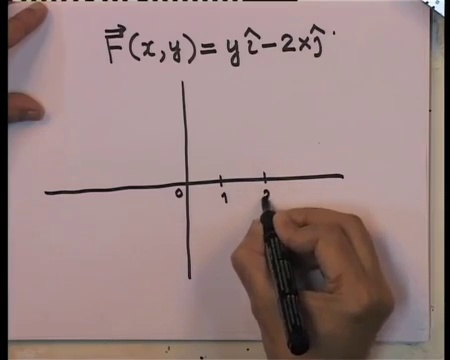 F⃗(x,y) = yî − 2xĵ
0 1 2